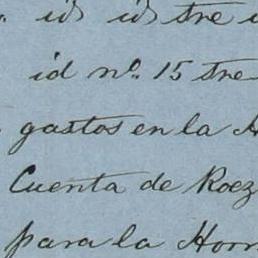 id id tre
id nº. 15 tre
gastos en la
Cuenta de Roez
para la Horn